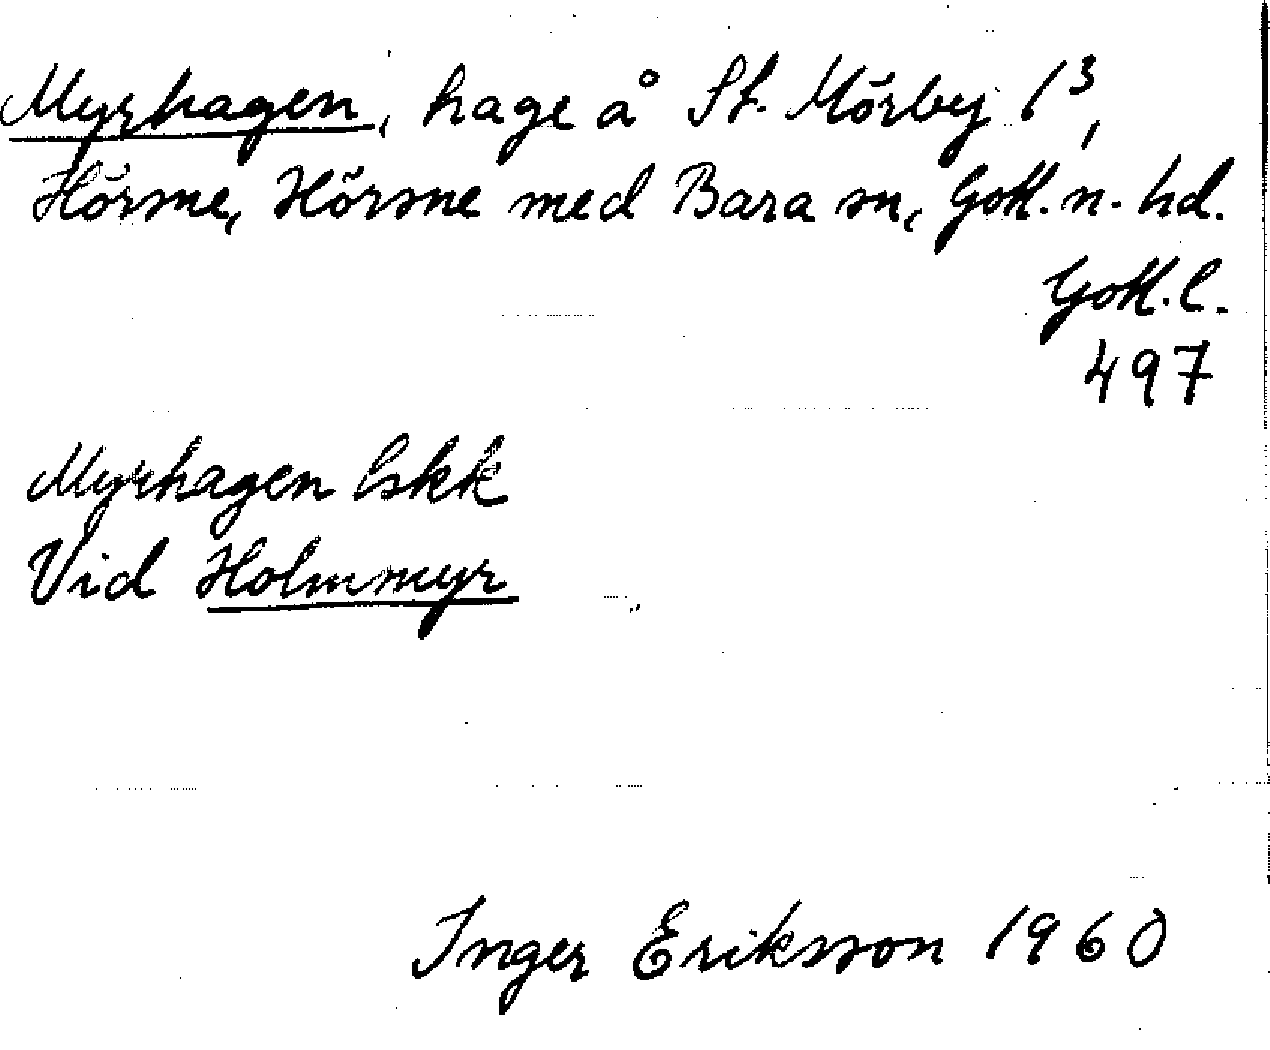 Myrhagen, hage å St. Mörby 1³,
Hörsne, Hörsne med Bara sn, Gotl. n. hd.
Gotl. l.
497
Myrhagen Eskk
Vid Holmmyr
Inger Eriksson 1960